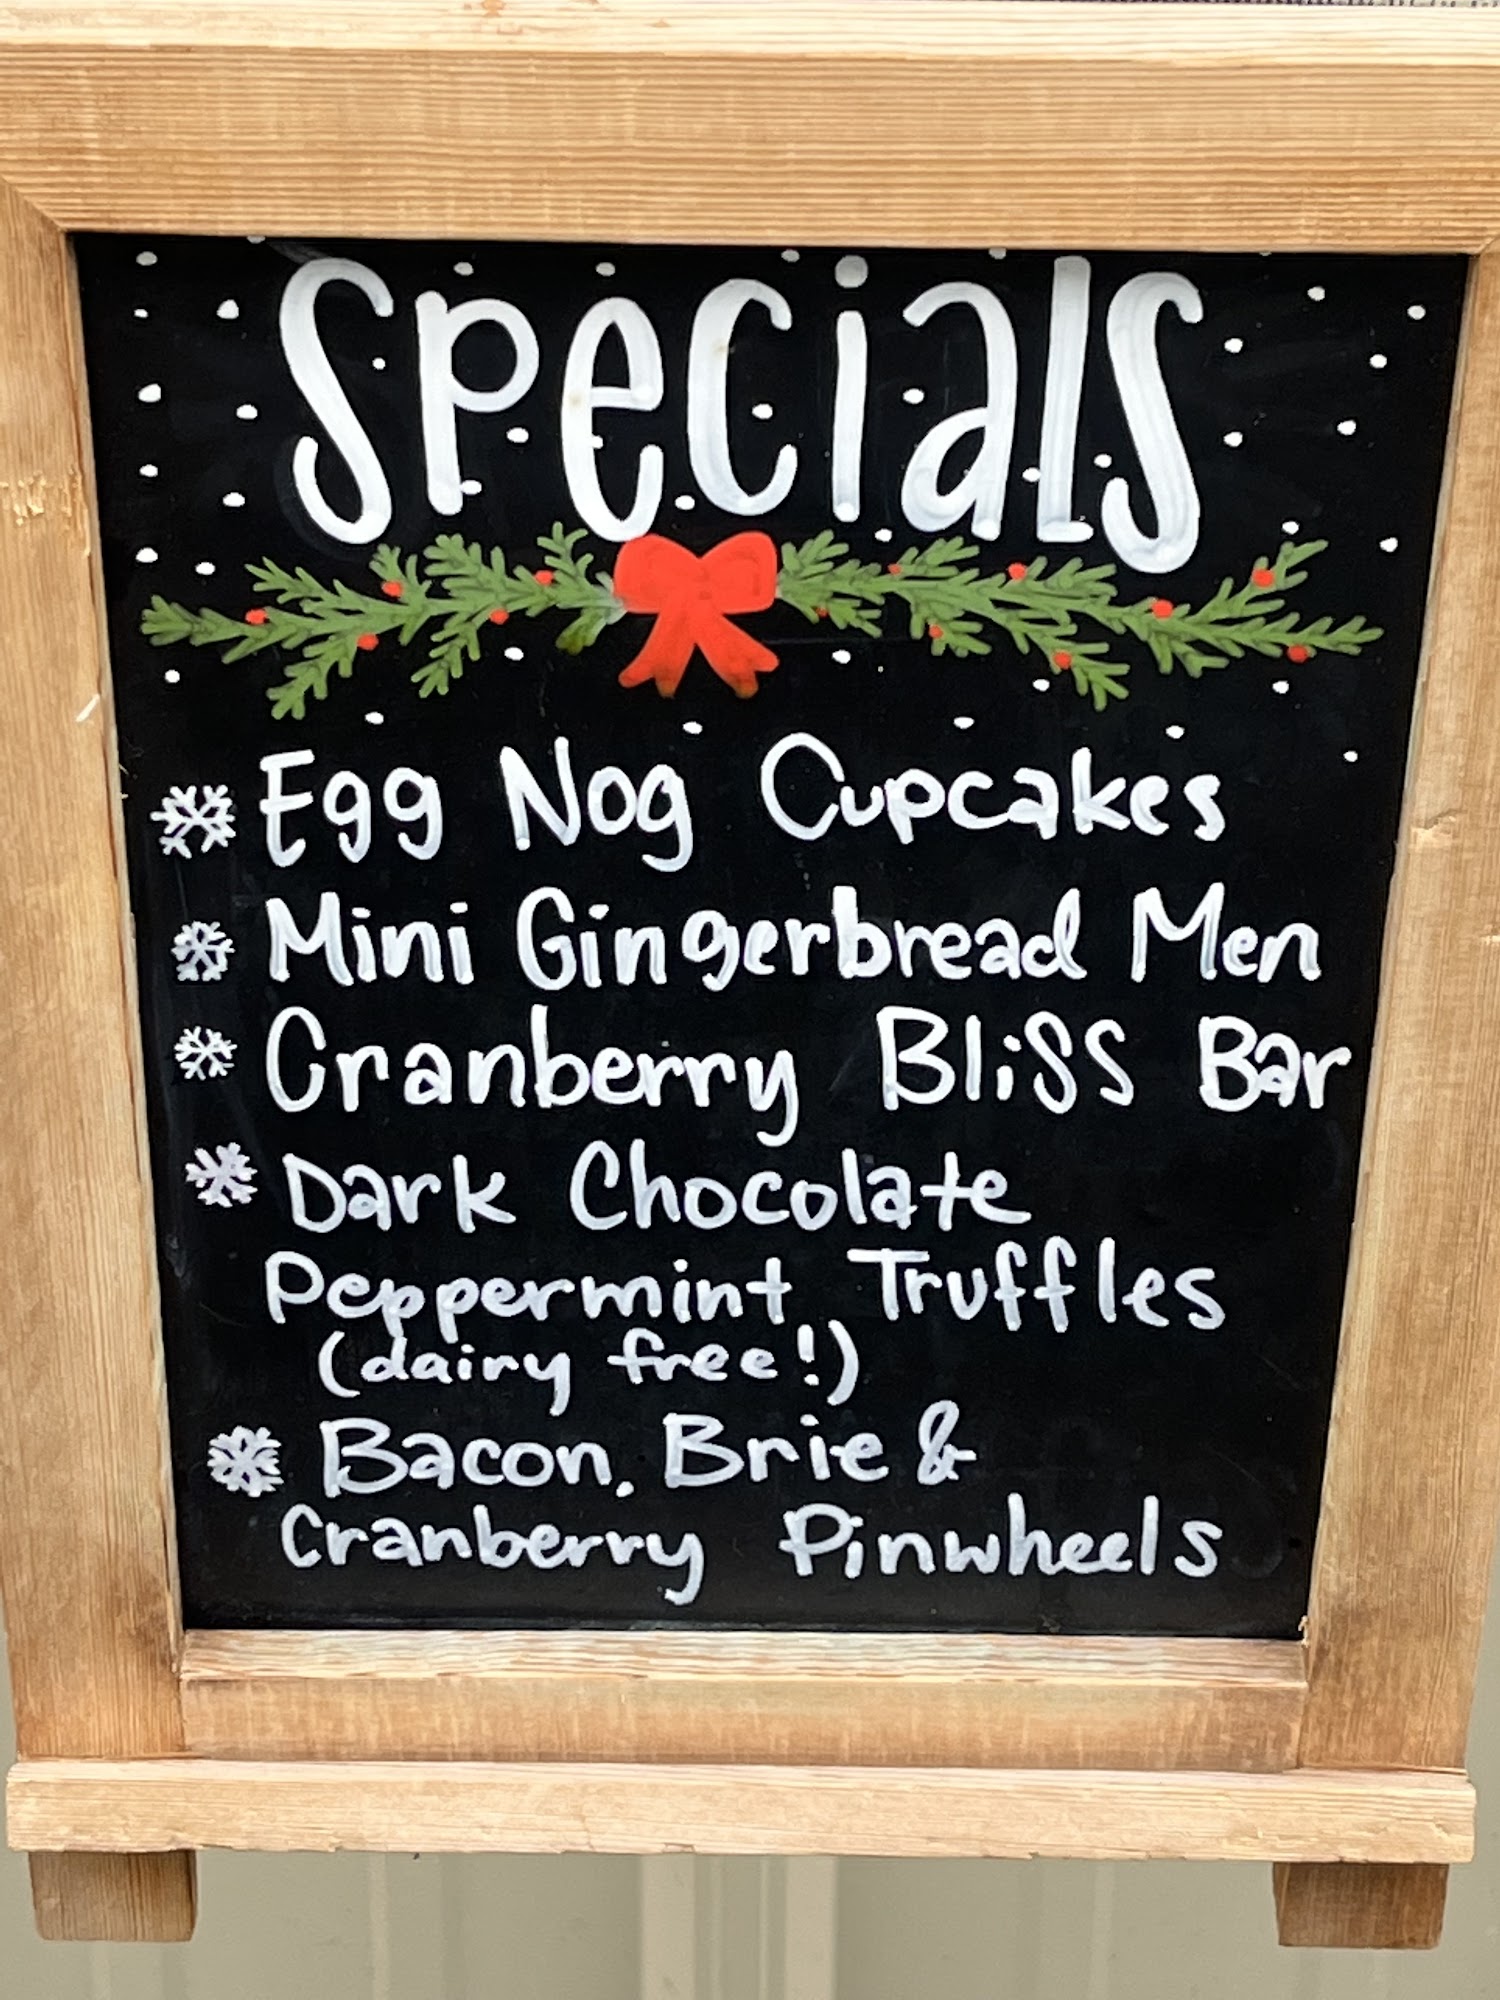 Specials
Egg Nog Cupcakes
Mini Gingerbread Men
Cranberry Bliss Bar
Dark Chocolate
Peppermint Truffles
(dairy free!)
Bacon, Brie &
Cranberry Pinwheels